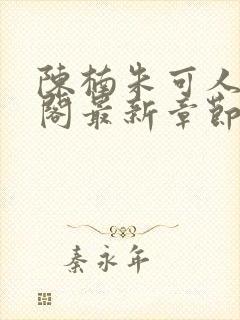 陳楠朱可人
閣最新章節
秦永年